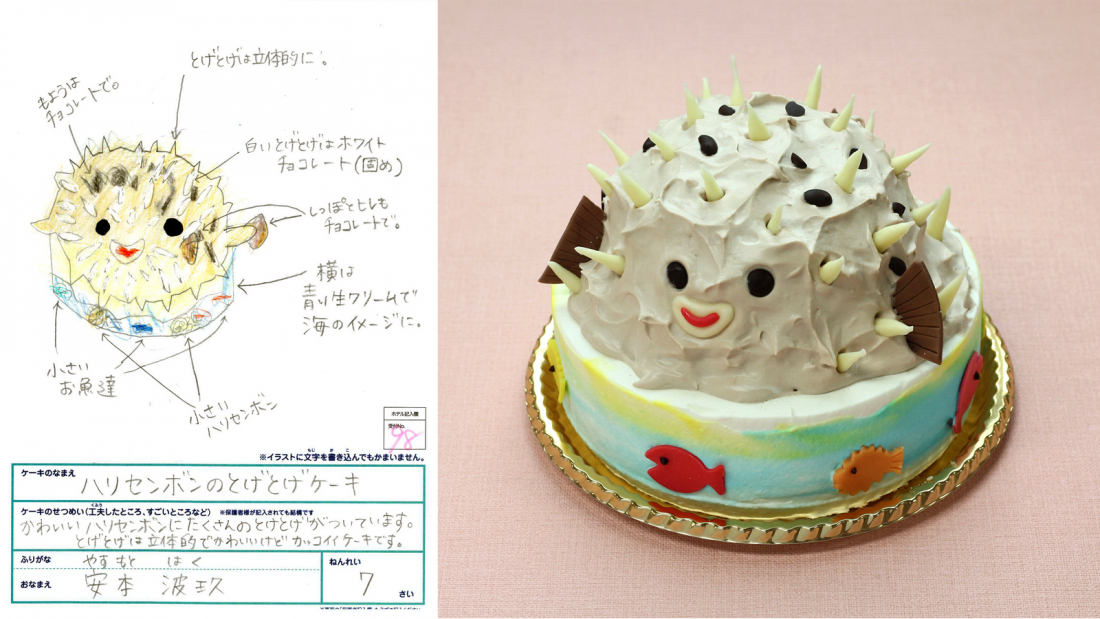 とげとげは立体的に。
もようは
チョコレートで。
白いとげとげはホワイト
チョコレート(固め)
しっぽとヒレも
チョコレートで。
横は
青い生クリームで
海のイメージに。
小さい
お魚達
小さい
ハリセンボン
ホテル記入欄
受付No.
98
※イラストに文字を書き込んでもかまいません。
ケーキのなまえ
ハリセンボンのとげとげケーキ
ケーキのせつめい(工夫したところ、すごいところなど) ※保護者様が記入されても結構です
かわいいハリセンボンにたくさんのとげとげがついています。
とげとげは立体的でかわいいけどカッコイイケーキです。
ふりがな やすもと はく
おなまえ 安本 波玖
ねんれい
7 さい